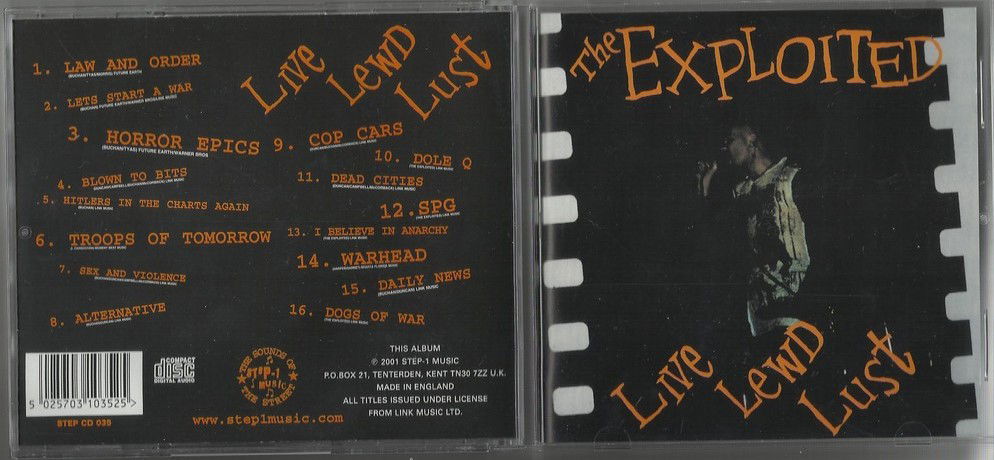 Live
Lewd
Lust
1. LAW AND ORDER
(BUCHAN/TYAS/MORRIS) FUTURE EARTH
2. LETS START A WAR
(BUCHAN) FUTURE EARTH/WARNER BROS/LINK MUSIC
3. HORROR EPICS
(BUCHAN/TYAS) FUTURE EARTH/WARNER BROS
4. BLOWN TO BITS
5. HITLERS IN THE CHARTS AGAIN
(BUCHAN) LINK MUSIC
6. TROOPS OF TOMORROW
7. SEX AND VIOLENCE
8. ALTERNATIVE
(BUCHAN/DUNCAN) LINK MUSIC
9. COP CARS
10. DOLE Q
(THE EXPLOITED) LINK MUSIC
11. DEAD CITIES
(DUNCAN/CAMPBELL/McCORMACK) LINK MUSIC
12. SPG
(THE EXPLOITED) LINK MUSIC
13. I BELIEVE IN ANARCHY
(THE EXPLOITED) LINK MUSIC
14. WARHEAD
15. DAILY NEWS
(BUCHAN/DUNCAN) LINK MUSIC
16. DOGS OF WAR
(THE EXPLOITED) LINK MUSIC
5 025703 103525 >
STEP CD 035
COMPACT
disc
DIGITAL AUDIO
THE SOUNDS OF
STEP-1
MUSIC
THE STREET
www.step1music.com
THIS ALBUM
℗ 2001 STEP-1 MUSIC
P.O.BOX 21, TENTERDEN, KENT TN30 7ZZ U.K.
MADE IN ENGLAND
ALL TITLES ISSUED UNDER LICENSE
FROM LINK MUSIC LTD.
The EXPLOITED
Live
Lewd
Lust